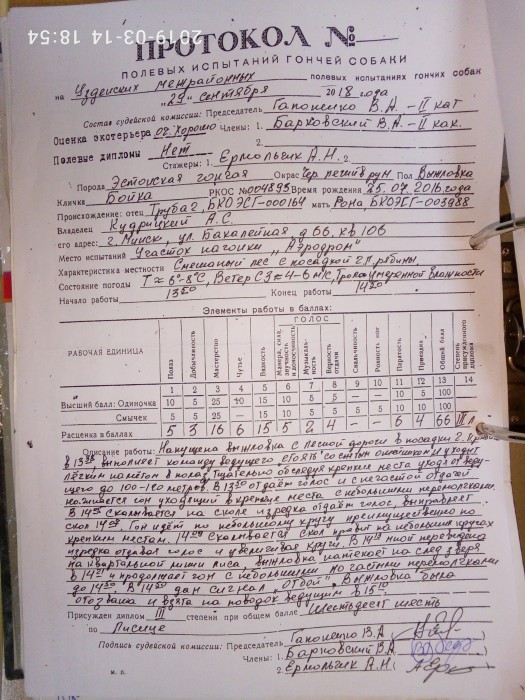 2019-03-14 18:54
ПРОТОКОЛ №
ПОЛЕВЫХ ИСПЫТАНИЙ ГОНЧЕЙ СОБАКИ
на Узденских межрайонных полевых испытаниях гончих собак
"29" сентября 2018 года
Состав судейской комиссии: Председатель Гапоненко В.А. – II кат
Оценка экстерьера оч. хорошо Члены: 1. Барковский В.А. – II кат.
Полевые дипломы Нет 2.
Стажеры: 1. Ермольчик А.Н. 2.
Порода Эстонская гончая Окрас Чер пегий в рум. Пол Выжловка
Кличка Бойка РКОС № 004895 Время рождения 25.07.2016 года
Происхождение: отец Труба 2, БКОЭСГ-000164 мать Рона, БКОЭСГ-003988
Владелец Кудрицкий А.С.
его адрес: г. Минск, ул. Бакалейная, д 66, кв 106
Место испытаний Участок нагонки "Аэродром"
Характеристика местности Смешанный лес с посадкой 2 л. рябины,
Состояние погоды Т = 6°-8°С, Ветер СЗ = 4-6 м/с, Тропа умеренной влажности
Начало работы 13 50 Конец работы 14 20
Элементы работы в баллах:
РАБОЧАЯ ЕДИНИЦА Полаз Добычливость Мастерство Чутье Вязкость ГОЛОС Манера, сила, звучность и доносчивость Музыкальность Верность отдачи Свальчивость Ровность ног Паратость Приездка Общий балл Степень присужденного диплома
1 2 3 4 5 6 7 8 9 10 11 12 13 14
Высший балл: Одиночка 10 5 25 10 15 10 5 5 — — 10 5 100
Смычек 5 5 25 — 15 10 5 5 5 5 10 10 100
Расценка в баллах 5 3 16 6 15 5 2 4 — — 6 4 66 III л
Описание работы: Напущена выжловка с лесной дороги в посадки
в 13 35, выполняет команду ведущего стоять со снятым ошейником и уходит
лёгким наметом в полаз. Тщательно обследуя крепкие места уходя от ведущего до 100-150 метров. В 13 50 отдаёт голос и с нечастой отдачей
начинается гон уходящий в крепкие места с небольшими перемолчками.
В 14 05 скалывается на сколе изредка отдаёт голос, выправляет
скол 14 08. Гон идёт по небольшому кругу преимущественно по
крепким местам.
изредка отдавая голос и увеличивая круги.
на квартальной линии лиса, выжловка натекает на след зверя
в 14 21 и продолжает гон с небольшими но частыми перемолчками
до 14 50. В 14 50 дан сигнал "Отбой". Выжловка была
отозвана и взята на поводок ведущим в 15 10
Присужден диплом III степени при общем балле Шестьдесят шесть
по Лисице
Подпись судейской комиссии: Председатель Гапоненко В.А.
Члены: 1. Барковский В.А.
м. п. 2. Ермольчик А.Н.